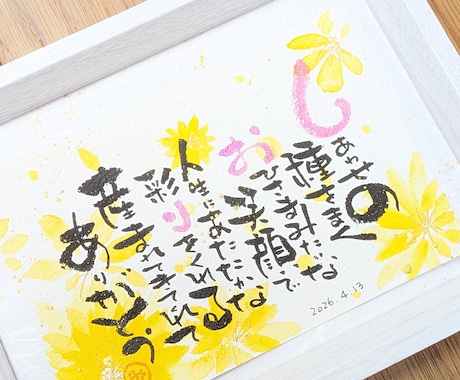 しあわせの
種をまく
おひさまみたいな
笑顔で
人生にあたたかな
彩りをくれる
産まれてきてくれて
ありがとう
2026.4.13